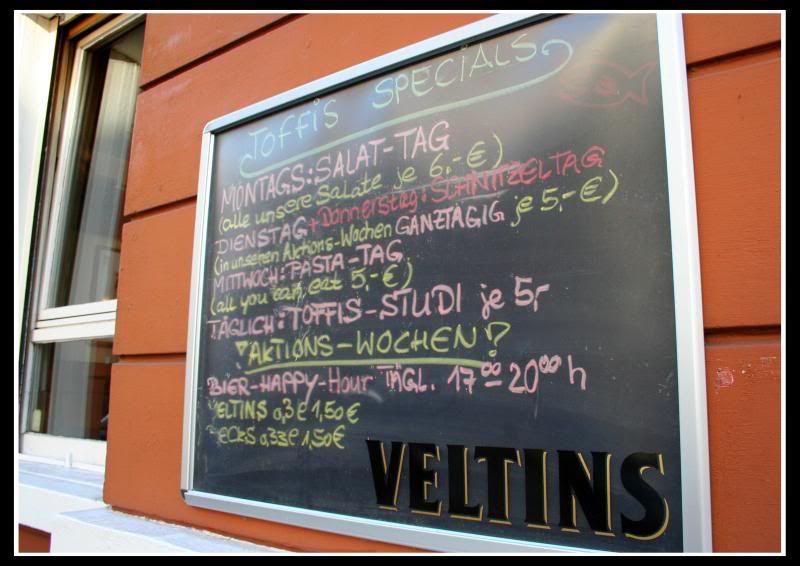 TOFFIS SPECIALS
MONTAGS: SALAT-TAG
(alle unsere Salate je 6,-€)
DIENSTAG + Donnerstag: SCHNITZELTAG
(in unseren Aktions-Wochen GANZTÄGIG je 5,-€)
MITTWOCH: PASTA-TAG
(all you can eat 5,-€)
TÄGLICH: TOFFIS-STUDI je 5,-
AKTIONS-WOCHEN!
BIER-HAPPY-Hour TÄGL. 17⁰⁰-20⁰⁰ h
VELTINS 0,3 l 1,50€
BECKS 0,33 l 1,50€
VELTINS